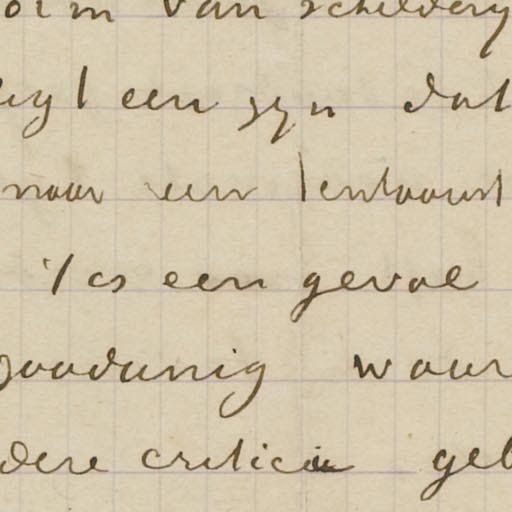 orm van schildery
ligt een zyn dat
naar een tentoonst
't is een geval
zoodanig waar
dere critici geb